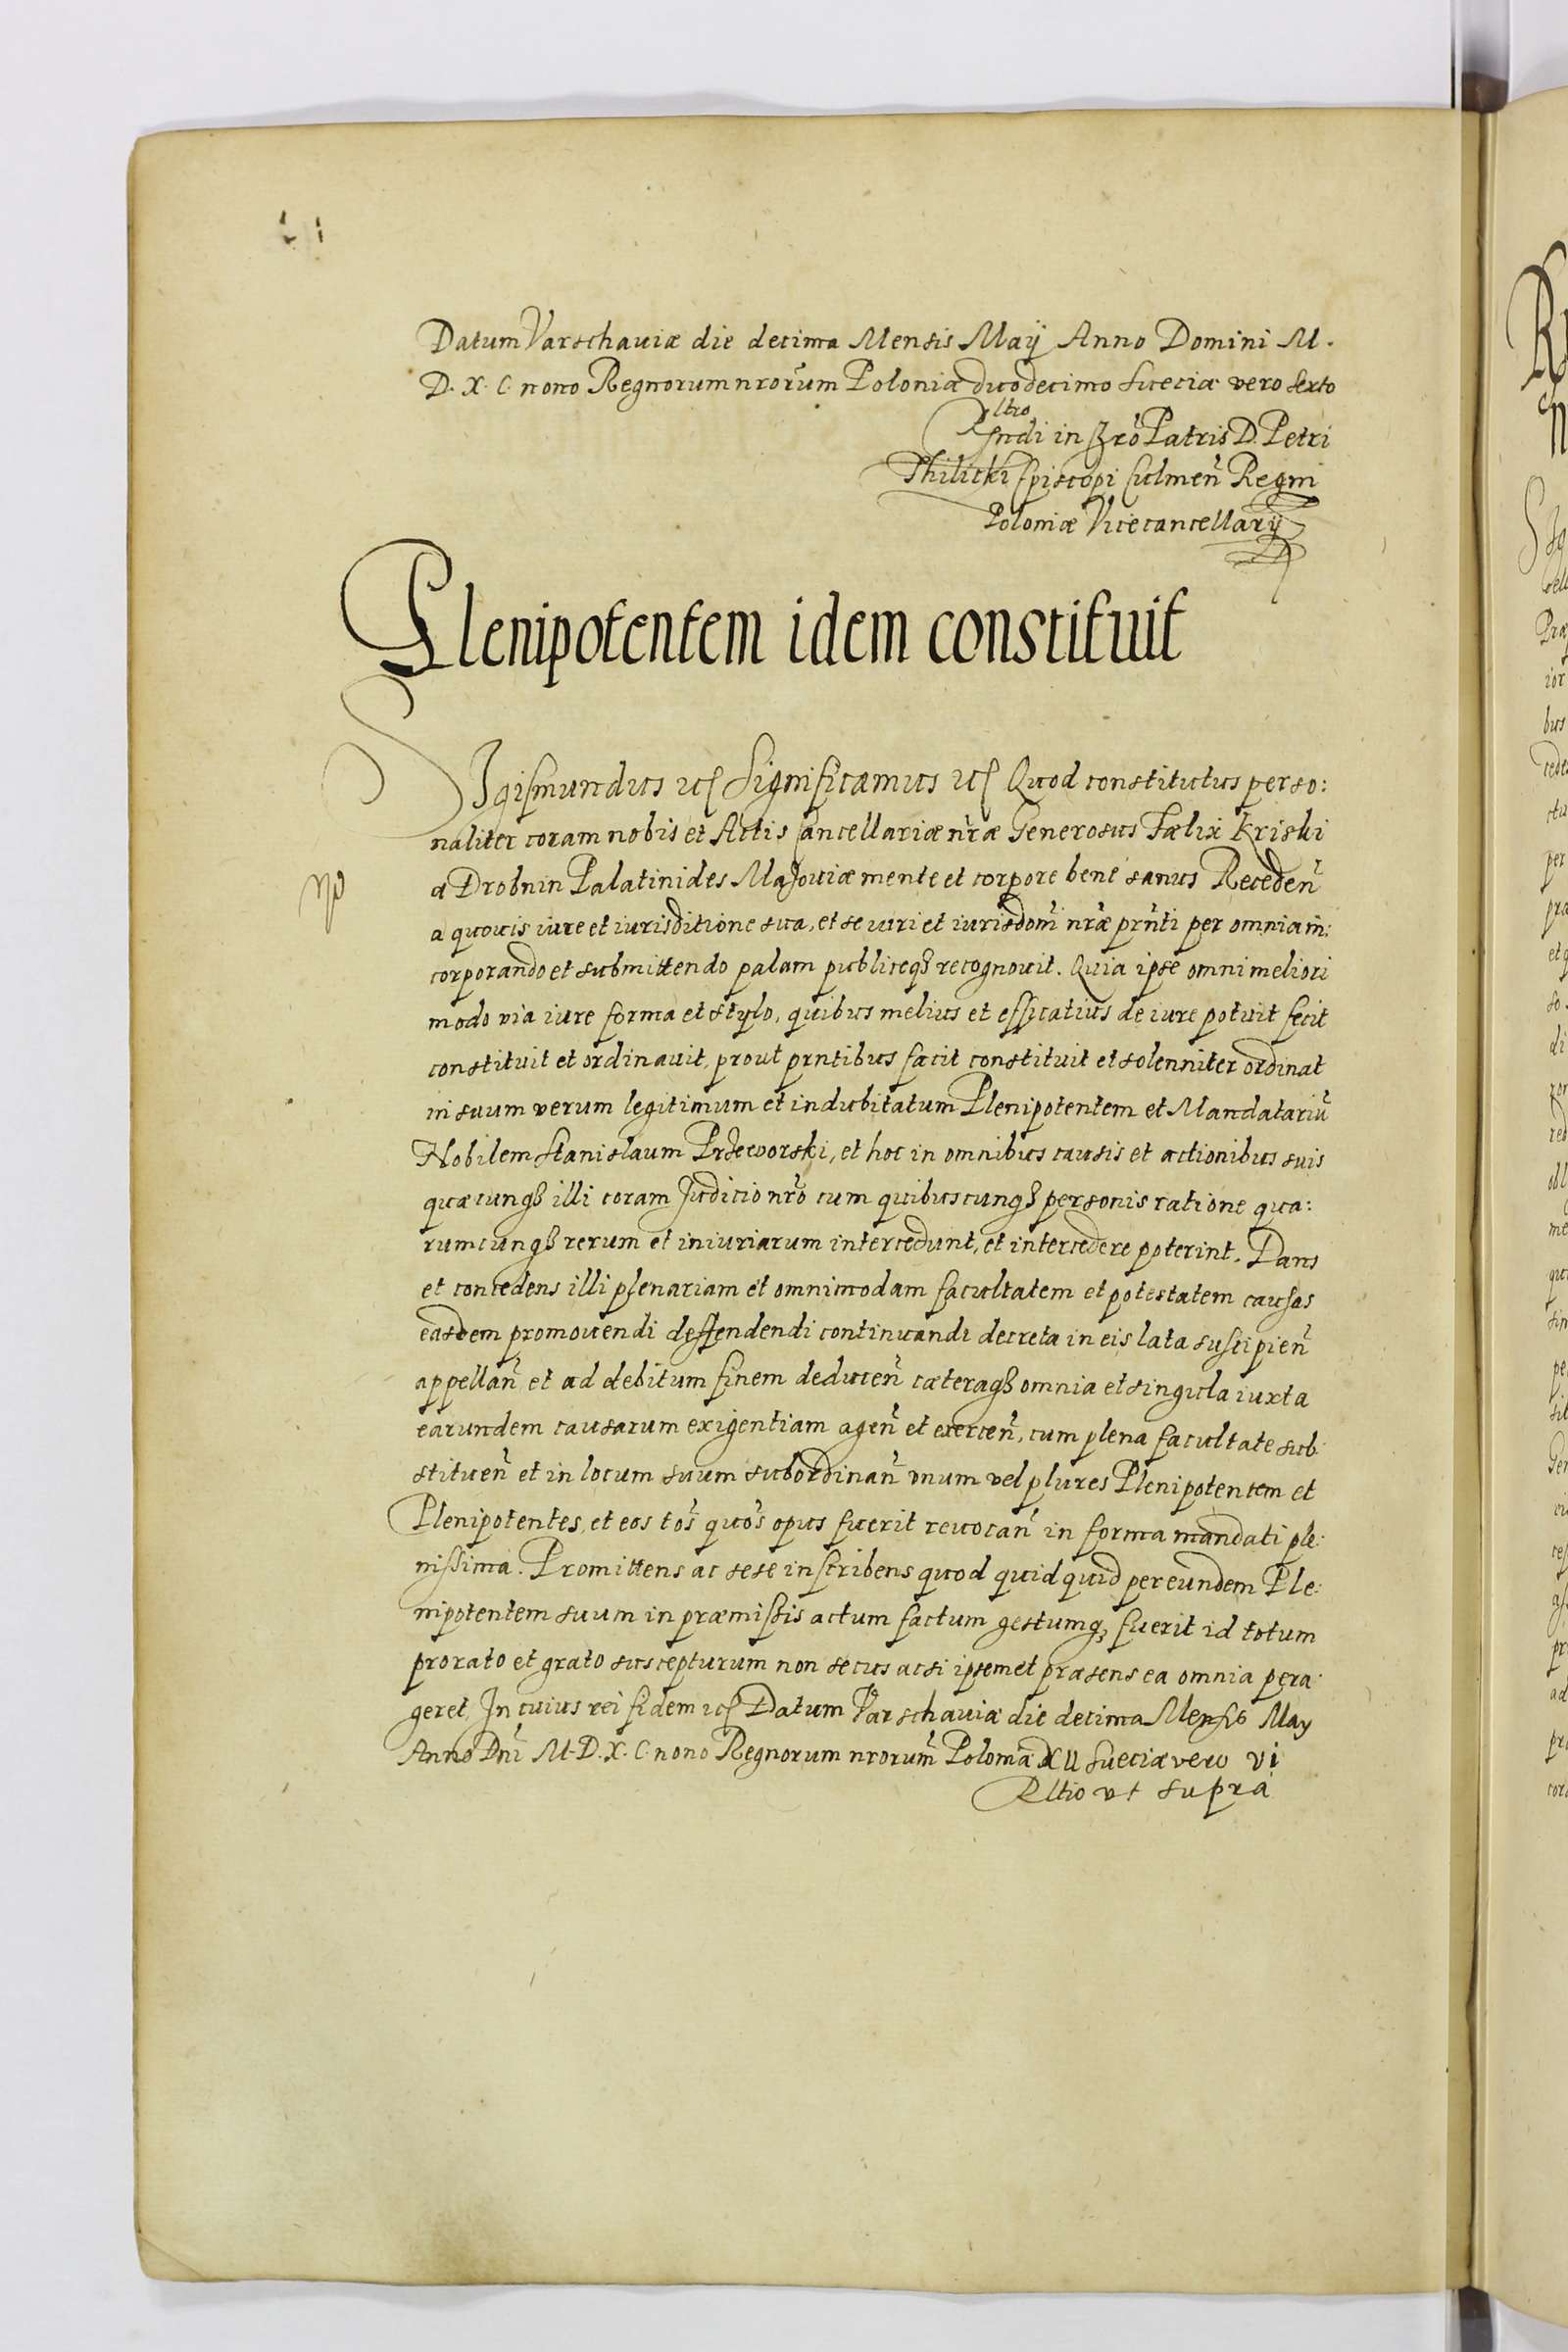 Datum Varschaviæ die decima Mensis Maÿ Anno Domini M.
D. X. C. nono Regnorum nrorum Poloniæ duodecimo Sueciæ vero sexto
Rltio
Rndi in Xro Patris D. Petri
Thilicki Episcopi Culmen Regni
Poloniæ Vicecancellarÿ
Plenipotentem idem constituit
Sigismundus etc Significamus etc Quod constitutus perso:
naliter coram nobis et Actis Cancellariæ nræ Generosus Fælix Kriski
a Drobnin Palatinides Mazoviæ mente et corpore bene sanus Receden
a quovis iure et iurisditione sua, et se iuri et iurisdom nræ prnti per omnia in:
corporando et submittendo palam publiceqz recognovit. Quia ipse omni meliori
modo via iure forma et stylo, quibus melius et efficatius de iure potuit fecit
constituit et ordinavit, prout prntibus facit constituit et solenniter ordinat
in suum verum legitimum et indubitatum Plenipotentem et Mandatariu
Nobilem Stanislaum Przeworski, et hoc in omnibus causis et actionibus suis
quæcunqz illi coram Juditio nro cum quibuscunqz personis ratione qua:
rumcunqz rerum et iniuriarum intercedunt, et intercedere poterint. Dans
et concedens illi plenariam et omnimodam facultatem et potestatem causas
easdem promovendi deffendendi continuandi decreta in eis lata suscipien
appellan et ad debitum finem deducen cæteraqz omnia et singula iuxta
earundem causarum exigentiam agen et exercen, cum plena facultate sub:
stituen et in locum suum subordinan unum vel plures Plenipotentem et
Plenipotentes, et eos tos quos opus fuerit revocan in forma mandati ple:
nissima. Promittens ac sese inscribens quod quidquid per eundem Ple:
nipotentem suum in præmissis actum factum gestumqz fuerit id totum
pro rato et grato suscepturum non secus ac si ipsemet præsens ea omnia pera:
geret, In cuius rei fidem etc Datum Varschaviæ die decima Mensis May
Anno Dni M. D. X. C. nono Regnorum nrorum Poloniæ XII Sueciæ vero vi
Rltio ut supra